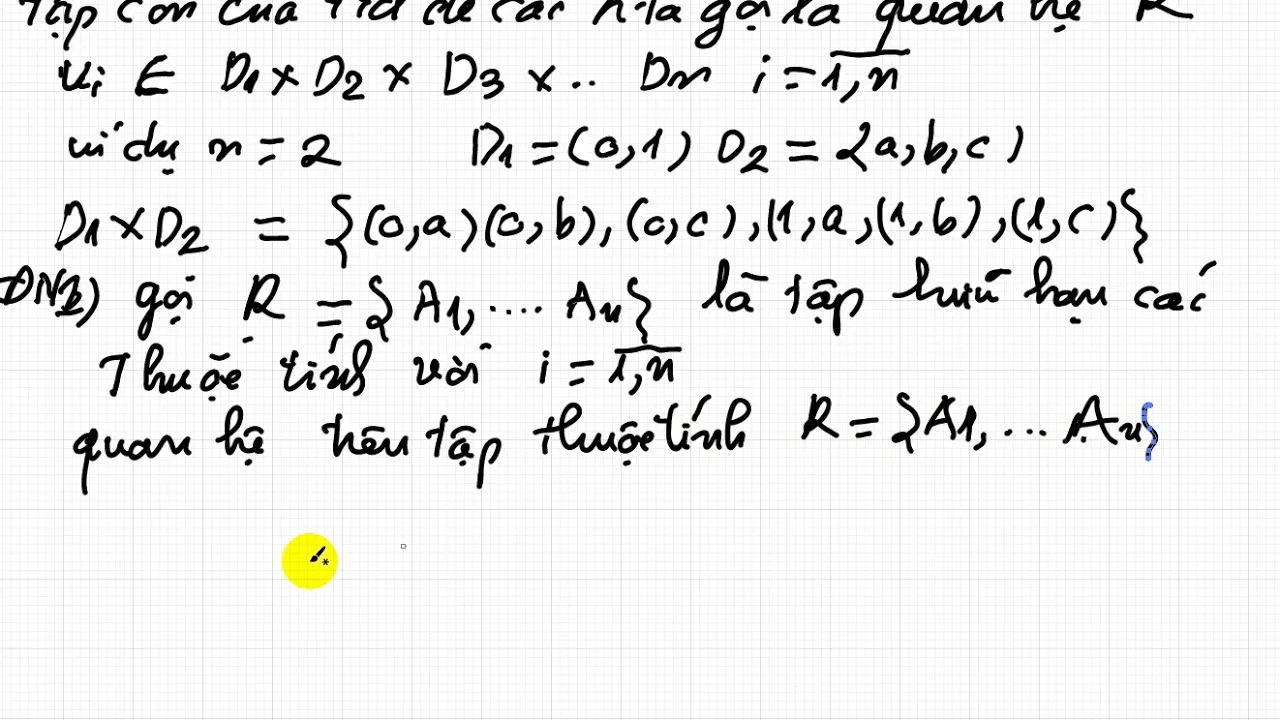 tập con của tích đề các n-là gọi là quan hệ R
Vi ∈ D1 x D2 x D3 x .. Dn i = 1,n
ví dụ n = 2 D1 = (0,1) D2 = {a,b,c)
D1 x D2 = {(0,a)(0,b),(0,c),(1,a,(1,b),(1,c)}
ĐN2) gọi R = { A1, .... An} là tập hữu hạn các
Thuộc tính với i = 1,n
quan hệ trên tập thuộc tính R = {A1, ... An}